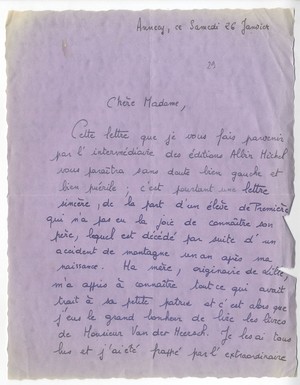 Annecy, ce Samedi 26 Janvier
Chère Madame,
Cette lettre que je vous fais parvenir
par l'intermédiaire des éditions Albin Michel
vous paraîtra sans doute bien gauche et
bien puérile ; c'est pourtant une lettre
sincère, de la part d'un élève de Première
qui n'a pas eu la joie de connaître son
père, lequel est décédé par suite d'un
accident de montagne un an après ma
naissance. Ma mère, originaire de Lille,
m'a appris à connaître tout ce qui avait
trait à sa petite patrie et c'est alors que
j'eus le grand bonheur de lire les livres
de Monsieur Van der Meersch. Je les ai tous
lus et j'ai été frappé par l'extraordinaire